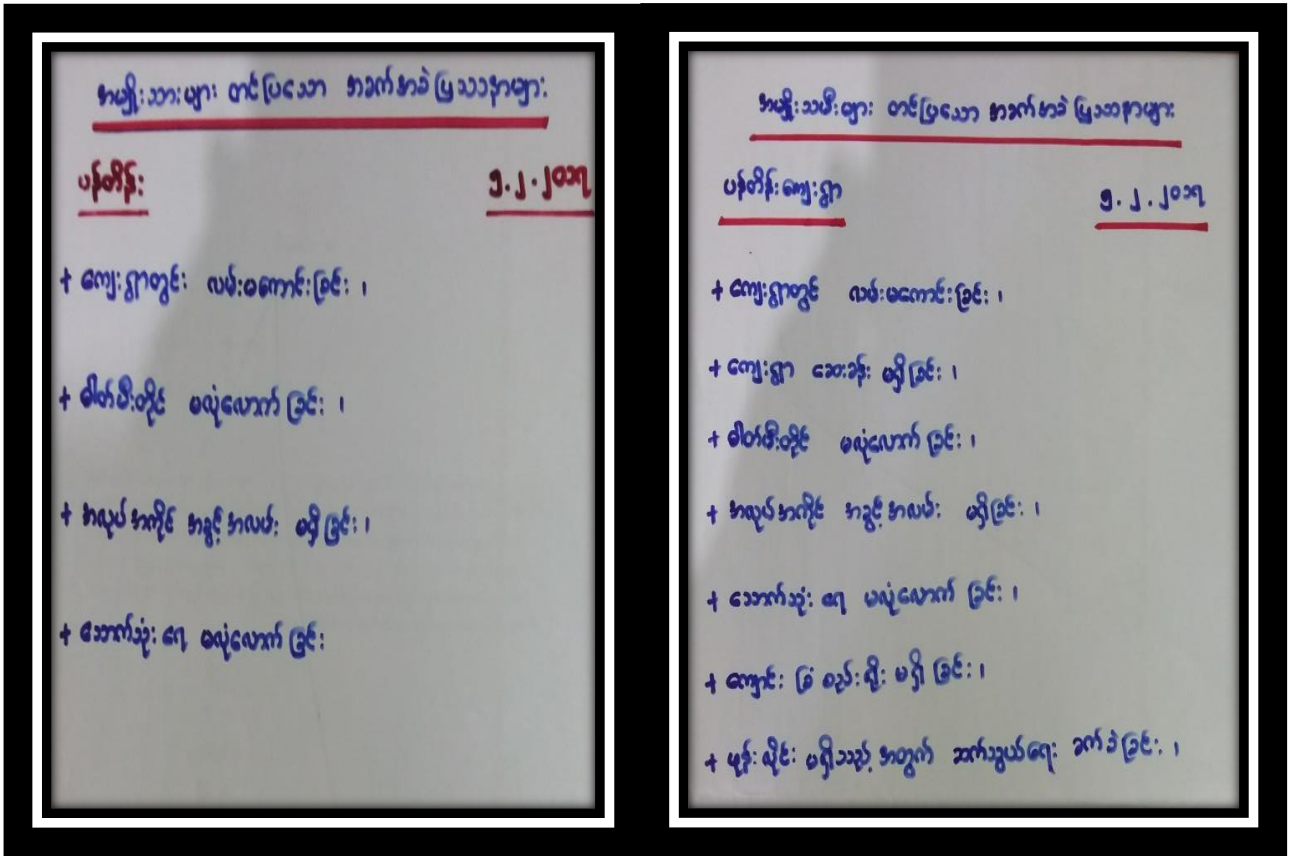 အမျိုးသားများ တင်ပြသော အခက်အခဲ ပြဿနာများ
ပန်တိန်း ၅.၂.၂၀၁၇
+ ကျေးရွာတွင်း လမ်းမကောင်းခြင်း ၊
+ ဓါတ်မီးတိုင် မလုံလောက်ခြင်း ၊
+ အလုပ်အကိုင် အခွင့်အလမ်း မရှိခြင်း ၊
+ သောက်သုံးရေ မလုံလောက်ခြင်း
အမျိုးသမီးများ တင်ပြသော အခက်အခဲ ပြဿနာများ
ပန်တိန်းကျေးရွာ ၅.၂.၂၀၁၇
+ ကျေးရွာတွင် လမ်းမကောင်းခြင်း ၊
+ ကျေးရွာ ဆေးခန်း မရှိခြင်း ၊
+ ဓါတ်မီးတိုင် မလုံလောက်ခြင်း ၊
+ အလုပ်အကိုင် အခွင့်အလမ်း မရှိခြင်း ၊
+ သောက်သုံးရေ မလုံလောက်ခြင်း ၊
+ ကျောင်းခြံစည်းရိုး မရှိခြင်း ၊
+ ဖုန်းလိုင်း မရှိသည့်အတွက် ဆက်သွယ်ရေး ခက်ခဲခြင်း ၊